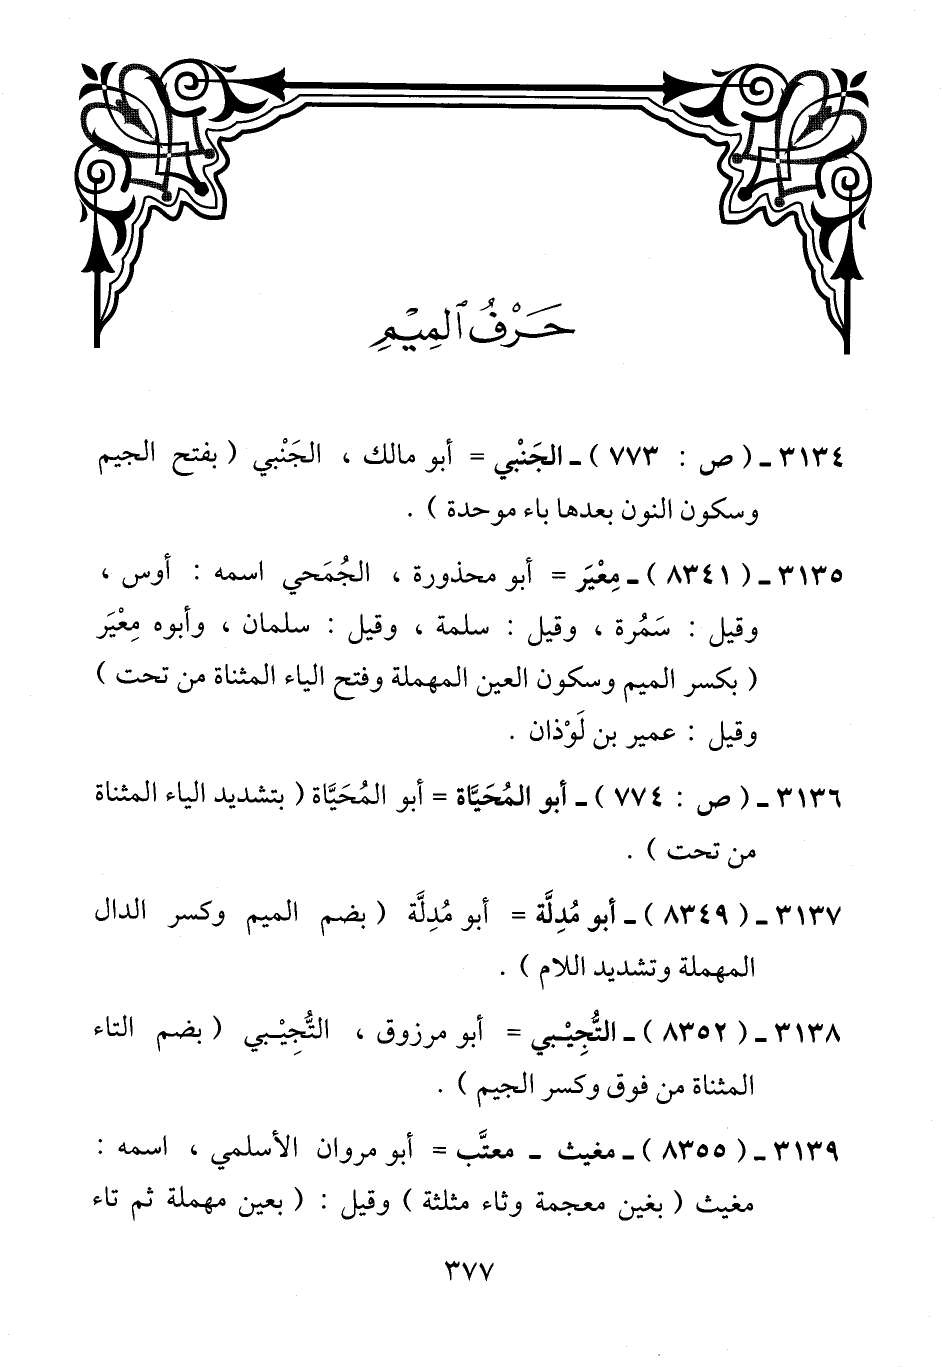 حَرْفُ ٱلمِيْمِ
٣١٣٤ ـ ( ص : ٧٧٣ ) ـ الجَنْبي = أبو مالك ، الجَنْبي ( بفتح الجيم
وسكون النون بعدها باء موحدة ) .
٣١٣٥ ـ ( ٨٣٤١ ) ـ مِعْيَر = أبو محذورة ، الجُمَحي اسمه : أوس ،
وقيل : سَمُرة ، وقيل : سلمة ، وقيل : سلمان ، وأبوه مِعْيَر
( بكسر الميم وسكون العين المهملة وفتح الياء المثناة من تحت )
وقيل : عمير بن لَوْذان .
٣١٣٦ ـ ( ص : ٧٧٤ ) ـ أبو المُحَيَّاة = أبو المُحَيَّاة ( بتشديد الياء المثناة
من تحت ) .
٣١٣٧ ـ ( ٨٣٤٩ ) ـ أبو مُدِلَّة = أبو مُدِلَّة ( بضم الميم وكسر الدال
المهملة وتشديد اللام ) .
٣١٣٨ ـ ( ٨٣٥٢ ) ـ التُّجِيْـبي = أبو مرزوق ، التُّجِيْـبي ( بضم التاء
المثناة من فوق وكسر الجيم ) .
٣١٣٩ ـ ( ٨٣٥٥ ) ـ مغيث ـ معتَّب = أبو مروان الأسلمي ، اسمه :
مغيث ( بغين معجمة وثاء مثلثة ) وقيل : ( بعين مهملة ثم تاء
٣٧٧